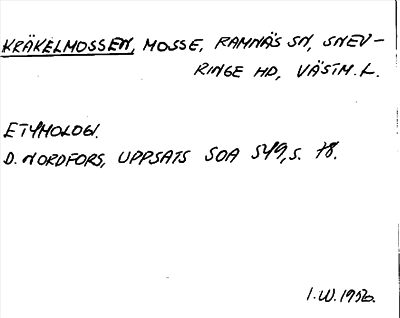 KRÄKELMOSSEN, MOSSE, RAMNÄS SN, SNEV-
RINGE HD, VÄSTM. L.
ETYMOLOGI.
D. NORDFORS, UPPSATS SOA 549, S. 78.
I.W. 1956.